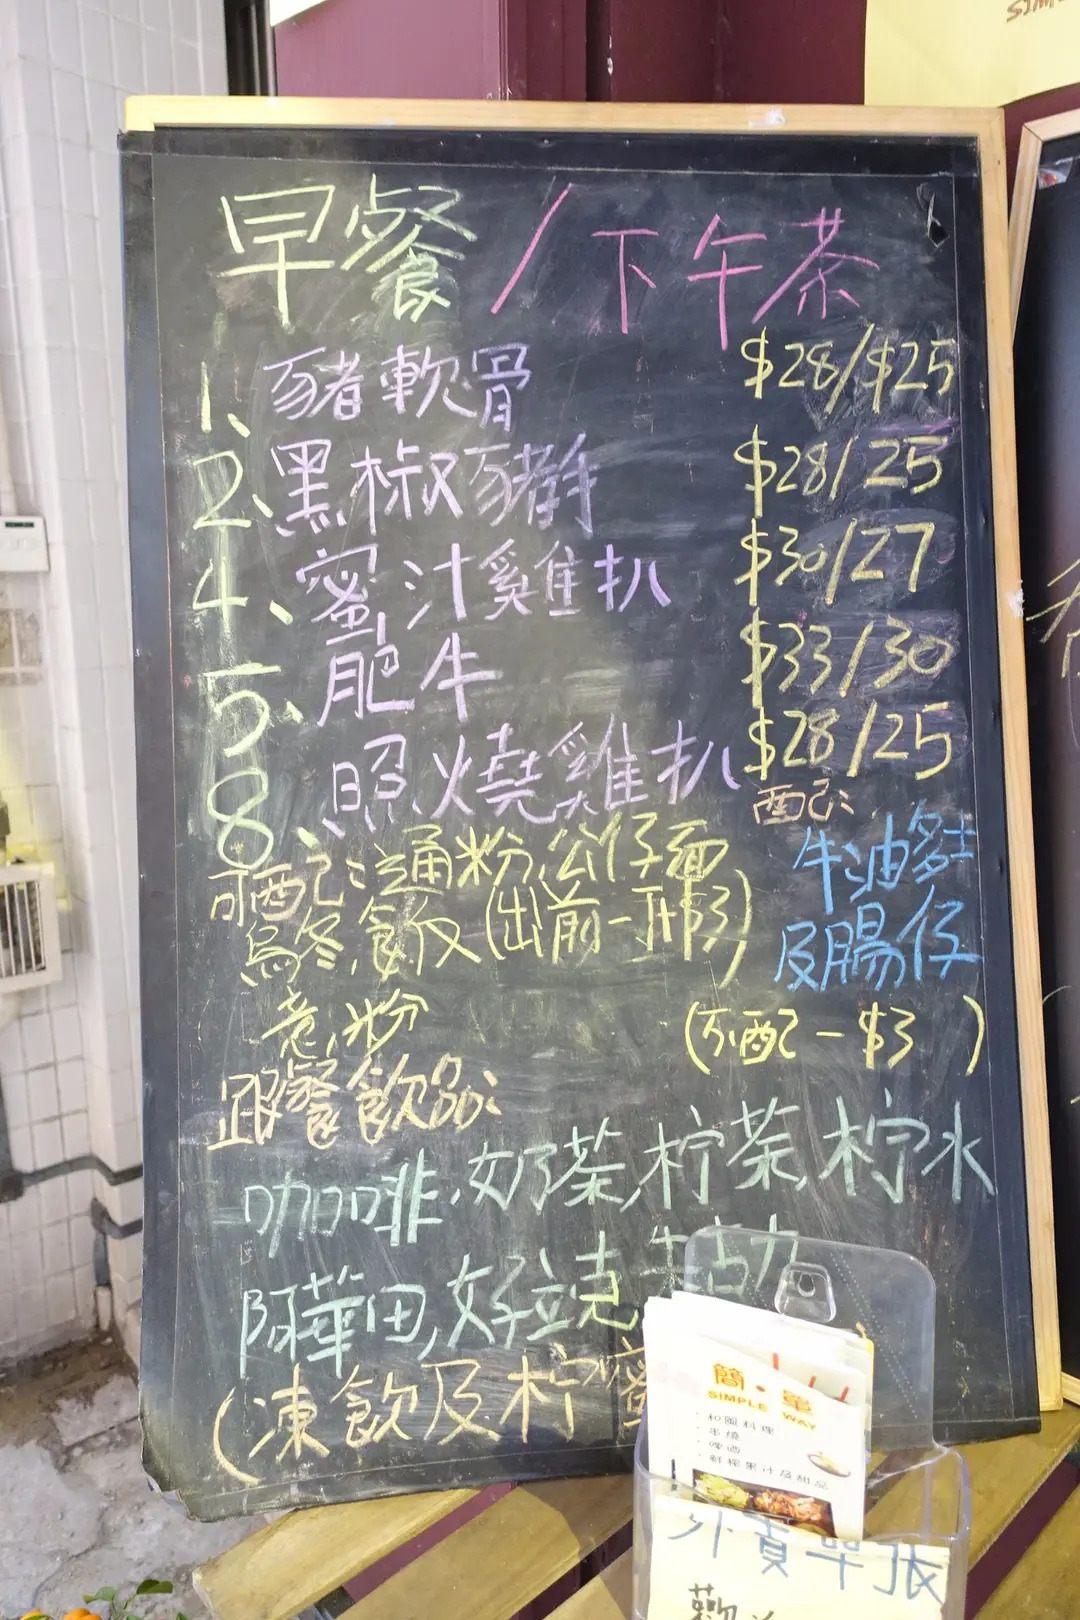 早餐/下午茶
1、豬軟骨 $28/$25
2、黑椒豬𩩍 $28/25
4、蜜汁雞扒 $30/27
5、肥牛 $33/30
8、照燒雞扒 $28/25
配:
可配:通粉,公仔面
牛油多士
烏冬,飯(出前一丁+$3)
及腸仔
米粉
(不配-$3)
跟餐飲品:
咖啡,奶茶,柠茶,柠水
阿華田,好立克,
(凍飲及柠
簡·單
SIMPLE WAY
·和風料理
·串燒
·啤酒
·鮮榨果汁及甜品
外賣單張
歡